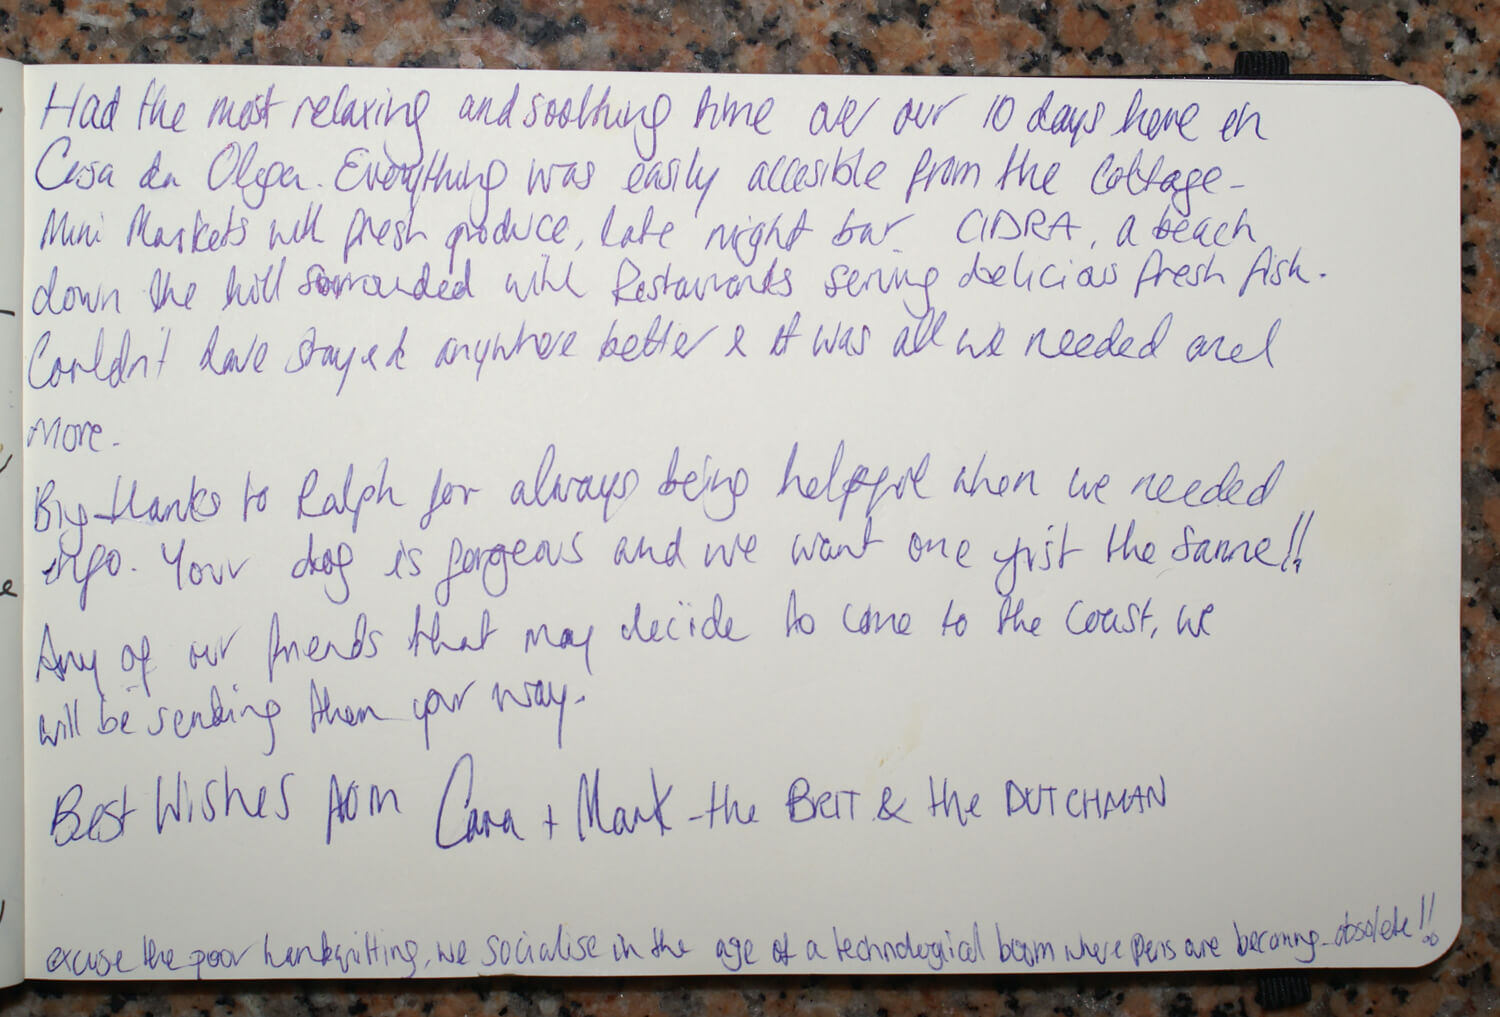 Had the most relaxing and soothing time over our 10 days here in
Casa da Olga. Everything was easily accesible from the Cottage -
Mini Markets with fresh produce, late night bar CIDRA, a beach
down the hill sorrounded with Restaurants serving delicious fresh fish.
Couldn't have stayed anywhere better & it was all we needed and
more.
Big thanks to Ralph for always being helpful when we needed
info. Your dog is gorgeous and we want one just the same!!
Any of our friends that may decide to come to the coast, we
will be sending them your way.
Best Wishes from Cara + Mark - the BRIT & the DUTCHMAN
excuse the poor handwritting, we socialise in the age of a technological boom where pens are becoming absolete!!